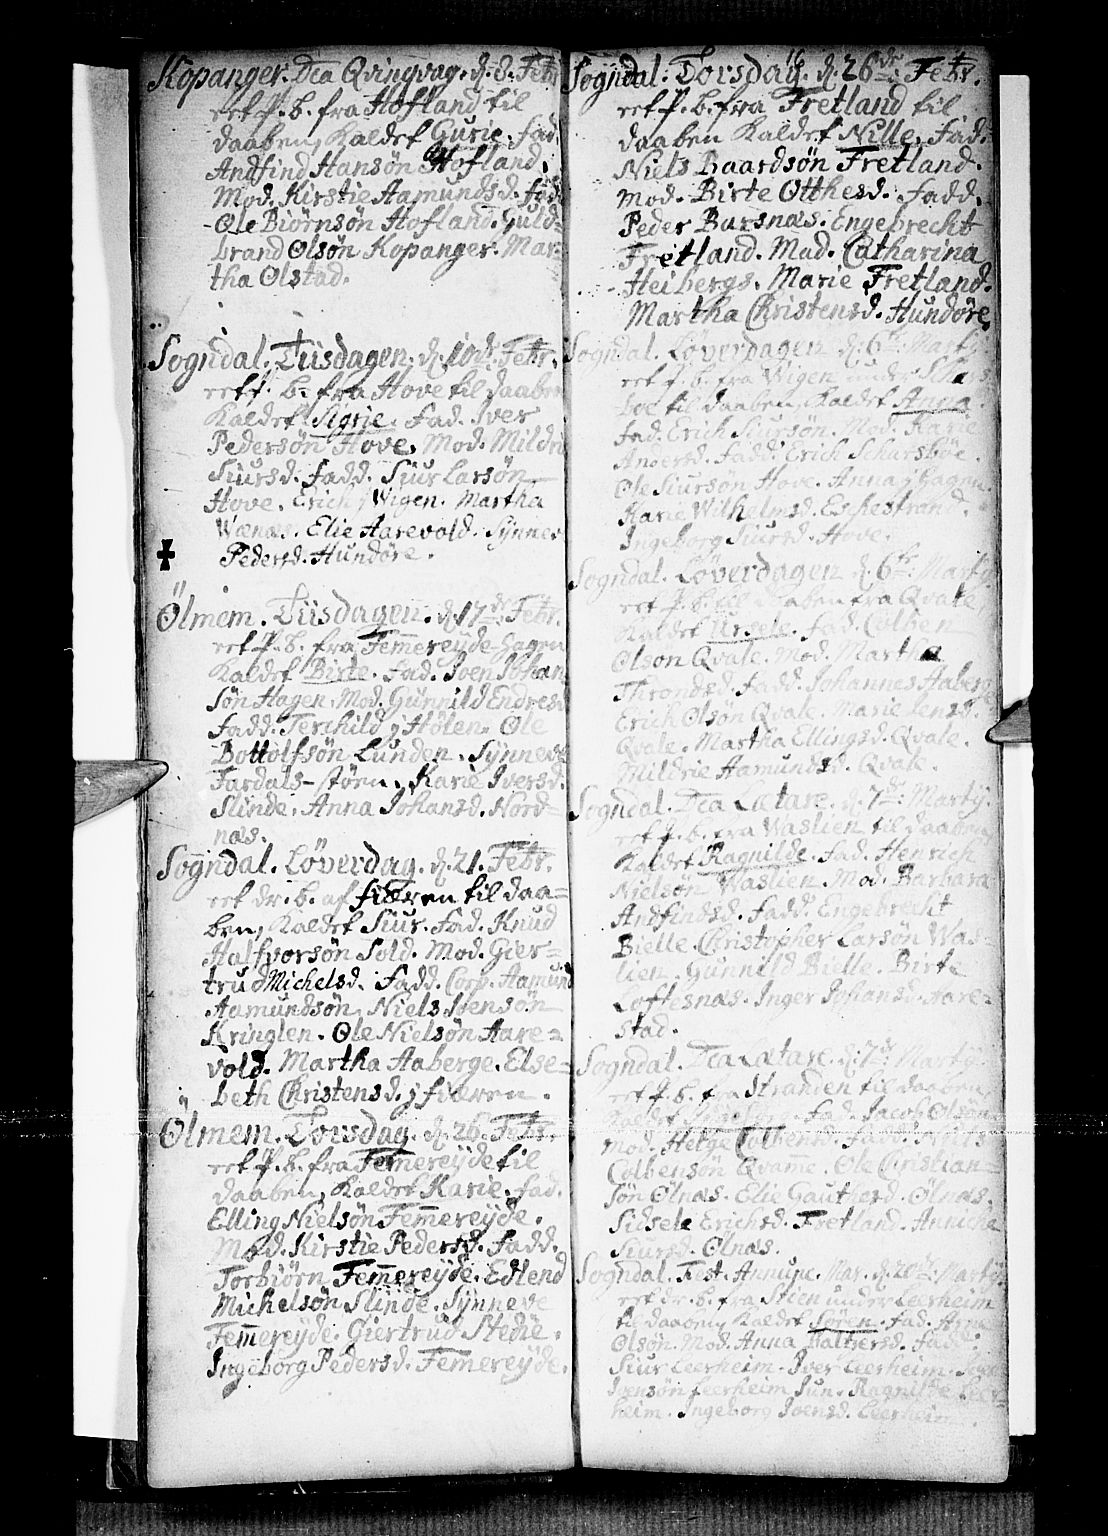 Kopanger. Dca Qvinqvag. d. 8. Febr.
eet P. b. fra Hofland til
daaben, kaldet Gurie. fad.
Andfind Hansøn Hofland.
Mod. Kirstie Aamundsd. fadd.
Ole Biørnsøn Hofland. Guld=
brand Olsøn Kopanger. Mar=
tha Olstad.
Sogndal. Tiisdagen. d. 10de Febr.
eet P. b. fra Hove til daaben
kaldet Sigrie. Fad. Iver
Pedersøn Hove. Mod. Mildri
Siursd. fadd. Siur Larsøn
Hove. Erich Wigen. Martha
Wænæs. Elie Aarevold. Synnev
Pedersd. Hundøre.
Ölmem. Tiisdagen. d. 17de Febr.
eet P. b. fra Femereyde-hagen
kaldet Birte. Fad. Joen Johan
søn Hagen. Mod. Gunnild Endresd.
Fadd. Terchild j Hølen. Ole
Bottolfsøn Lunden. Synneve
Fardals-støen. Karie Iversd.
Slinde. Anna Johansd. Nord=
næs.
Sogndal. Löverdag. d. 21. Febr.
eet dr. b. af fiæren til daa=
ben, kaldet Siur. Fad. Knud
Halfvorsøn Sold. Mod. Gier=
trud Michelsd. Fadd. Corp. Aamund
Aamundsøn, Niels Joensøn
Kringlen. Ole Nielsøn Aare=
vold. Martha Aaberge. Else=
beth Christensd. j fiæren.
Ölmem. Torsdag. d. 26. Febr.
eet P. b. fra Femereyde til
daaben, kaldet Karie. fad.
Elling Nielsøn Femereyde.
Mod. Kirstie Pedersd. Fadd.
Torbiørn Femereyde. Edlend
Michelsøn Slinde. Synneve
Femereyde. Giertrud Stedie.
Ingeborg Pedersd. Femereyde.
Sogndal. Torsdag. d. 26de Febr.
eet P. b. fra Fretland til
daaben kaldet Nille. Fad.
Niels Baardsøn Fretland.
Mod. Birte Otthesd. Fadd.
Peder Barsnæs. Engebrecht
Fretland. Mad. Catharina
Heibergs. Marie Fretland.
Martha Christensd. Hundøre.
Sogndal. Löverdagen d. 6te Martij
eet P. b. fra Wigen under Schars
böe til daaben, kaldet Anna.
fad. Erich Siursøn. Mod. Karie
Andersd. fadd. Erich Scharsböe.
Ole Siursøn Hove. Anna Hagen.
Karie Wilhelmsd. Eschestrand.
Ingeborg Siursd. Hove.
Sogndal. Löverdagen d. 6te Martij
eet P. b. til daaben fra Qvale,
kaldet Ursele. fad. Colben
Olson Qvale. Mod. Martha
Throndsd. fadd. Johannes Aaberge
Erich Olsøn Qvale. Marie Jensd.
Qvale. Martha Ellingsd. Qvale.
Mildrie Aamundsd. Qvale.
Sogndal. Dca Lætare. d. 7de Martij.
eet P. b. fra Waslien til daaben,
kaldet Ragnilde. fad. Henrich
Nielsøn Waslien. Mod. Barbara
Andfindsd. fadd. Engebrecht
Bielle. Christopher Larsøn Was=
lien. Gunnild Bielle. Birte
Loftesnæs. Inger Johansd. Aare=
stad.
Sogndal. Dca Lætare. d. 7de Martij
eet P. b. fra Stranden til daaben
kaldet fad. Jacob Olsøn
Mod. Helge Colbensd. Fadd. Niels
Colbensøn Qvame. Ole Christian=
søn Ølnæs. Elie Gauthesd. Ølnæs.
Sidsele Erichsd. Fretland. Anniche
Siursd. Ølnæs.
Sogndal. Fest. Annunc. Mar. Martij
eet dr. b. fra Stien under Leerheim
til daaben, kaldet Søren. Fad. Arne
Olsøn. Mod. Anna fadd.
Siur Leerheim. Iver Leerheim.
Joensøn Leerheim Jun. Ragnilde Leer=
heim. Ingeborg Joensd. Leerheim.